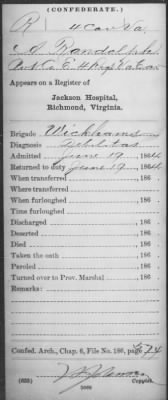 (CONFEDERATE.)
R 4 Cav Va.
Appears on a Register of
Jackson Hospital,
Richmond, Virginia.
Brigade Wickhams
Diagnosis Debilitas
Admitted June 19, 1864
Returned to duty June 19, 1864
When transferred , 186
Where transferred
When furloughed , 186
Time furloughed
Discharged , 186
Deserted , 186
Died , 186
Taken the oath , 186
Paroled , 186
Turned over to Prov. Marshal , 186
Remarks:
Confed. Arch., Chap. 6, File No. 186, page 24
(635)
Copyist.